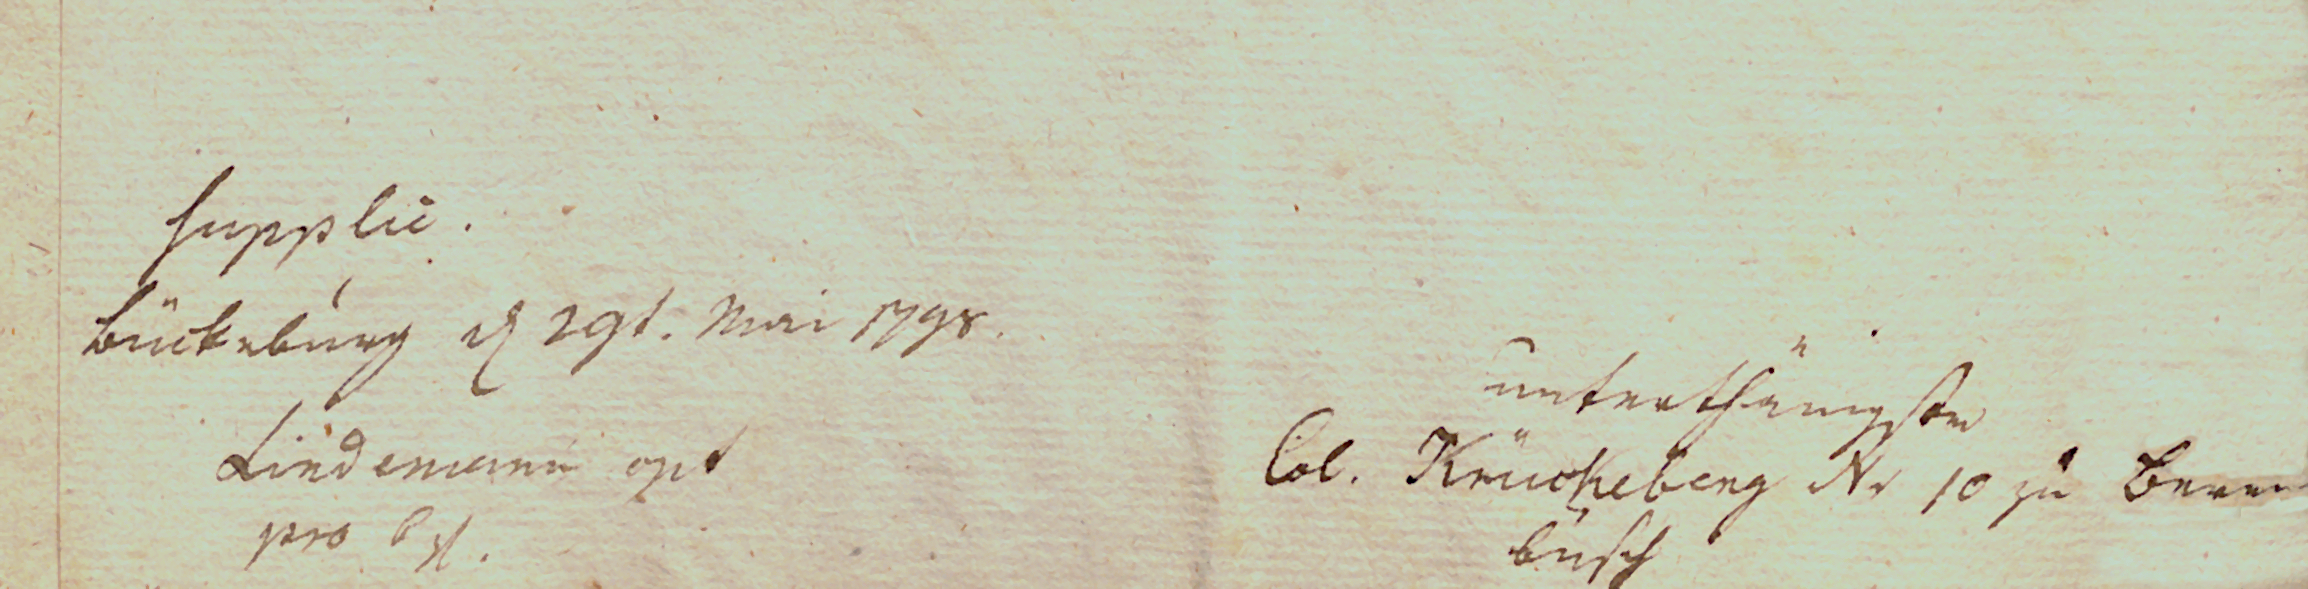 supplic.
Bückeburg d 29t. Mai 1798.
Lindemann
pro
unterthänigster
Col. Krückeberg Nr 10 zu Beeren
busch